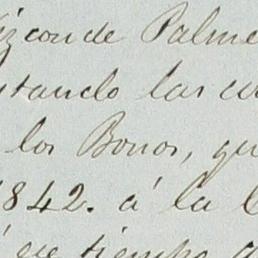 izconde Palme
ntando las cu
los Bonos, qu
1842. á la C
que tiempo a